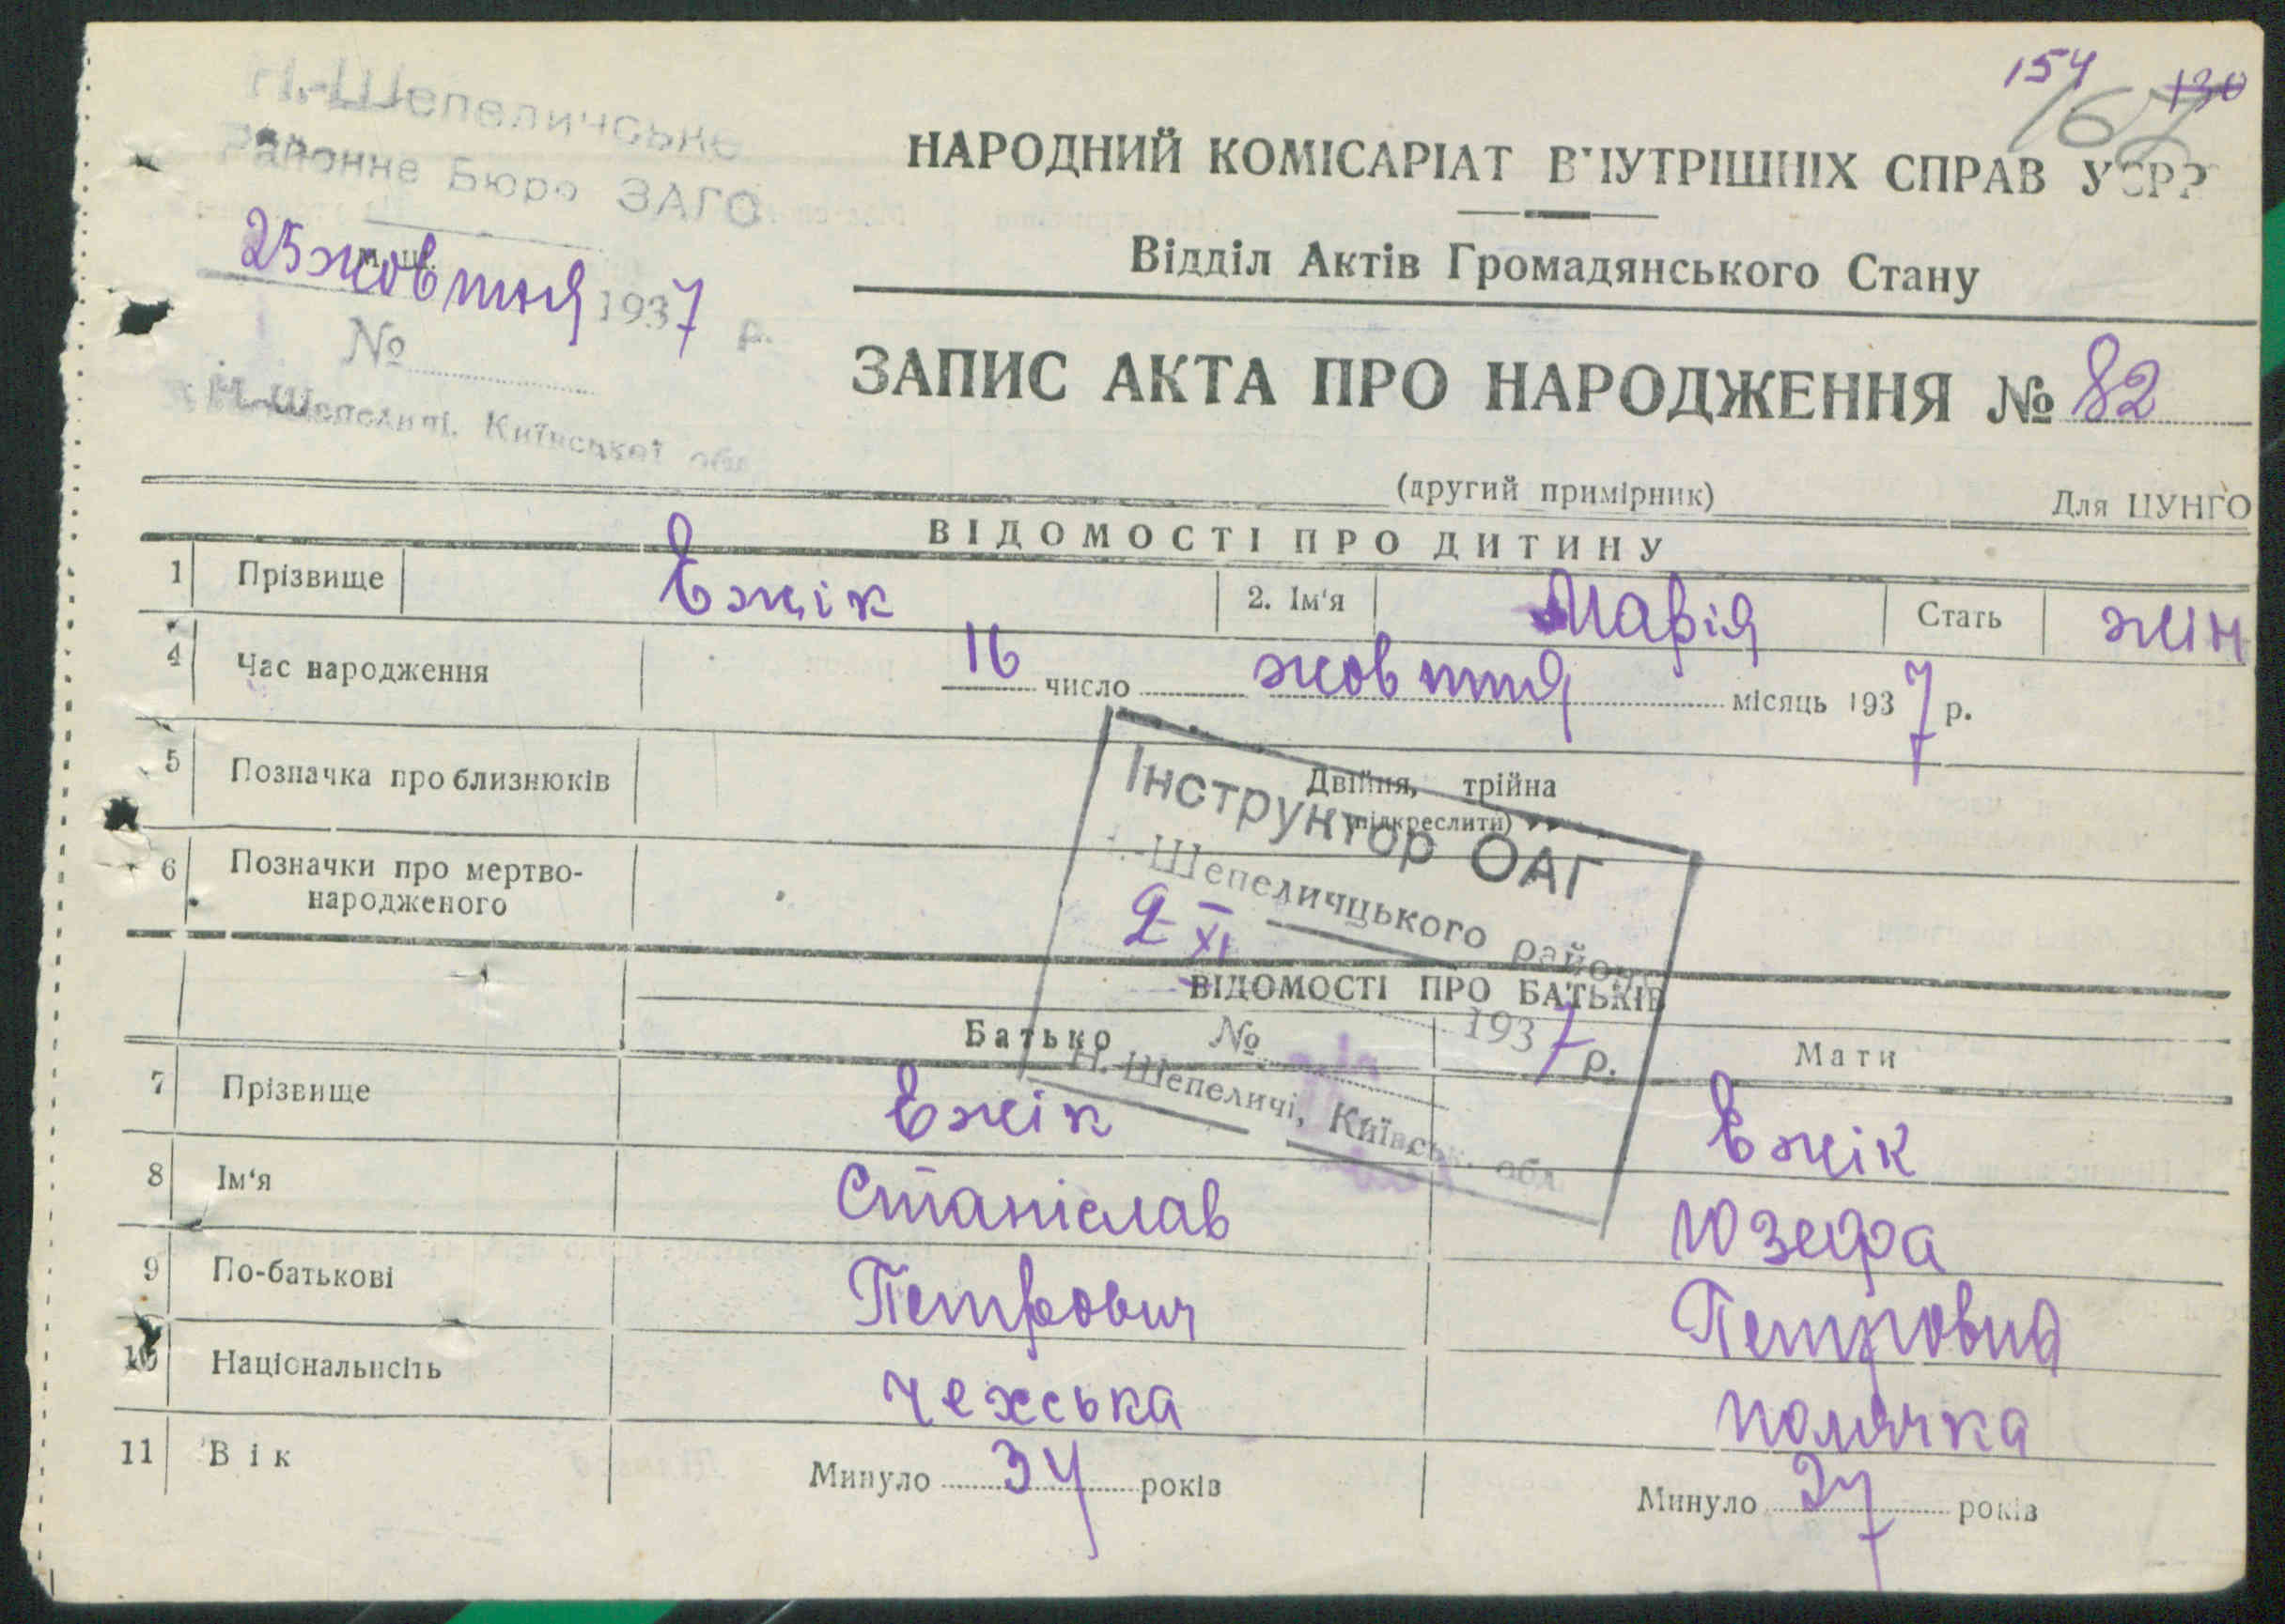 154 130
162
Н.-Шепеличське
Районне Бюро ЗАГС
25 жовтня 1937 р.
№
Н.-Шепеличі, Київської обл.
НАРОДНИЙ КОМІСАРІАТ ВНУТРІШНІХ СПРАВ УСРР
Відділ Актів Громадянського Стану
ЗАПИС АКТА ПРО НАРОДЖЕННЯ № 82
(другий примірник) Для ЦУНГО
ВІДОМОСТІ ПРО ДИТИНУ
1 Прізвище Ежік 2. Ім'я Марія Стать жін
4 Час народження 16 число жовтня місяць 1937 р.
5 Позначка про близнюків Двійня, трійна
(підкреслити)
6 Позначки про мертво-
народженого
Інструктор ОАГ
Н.-Шепеличцького району
2 XI 1937 р.
№
Н. Шепеличі, Київськ. обл.
ВІДОМОСТІ ПРО БАТЬКІВ
Батько Мати
7 Прізвище Ежік Ежік
8 Ім'я Станіслав Юзефа
9 По-батькові Петрович Петровна
10 Національність чехська полячка
11 Вік Минуло 34 років Минуло 27 років